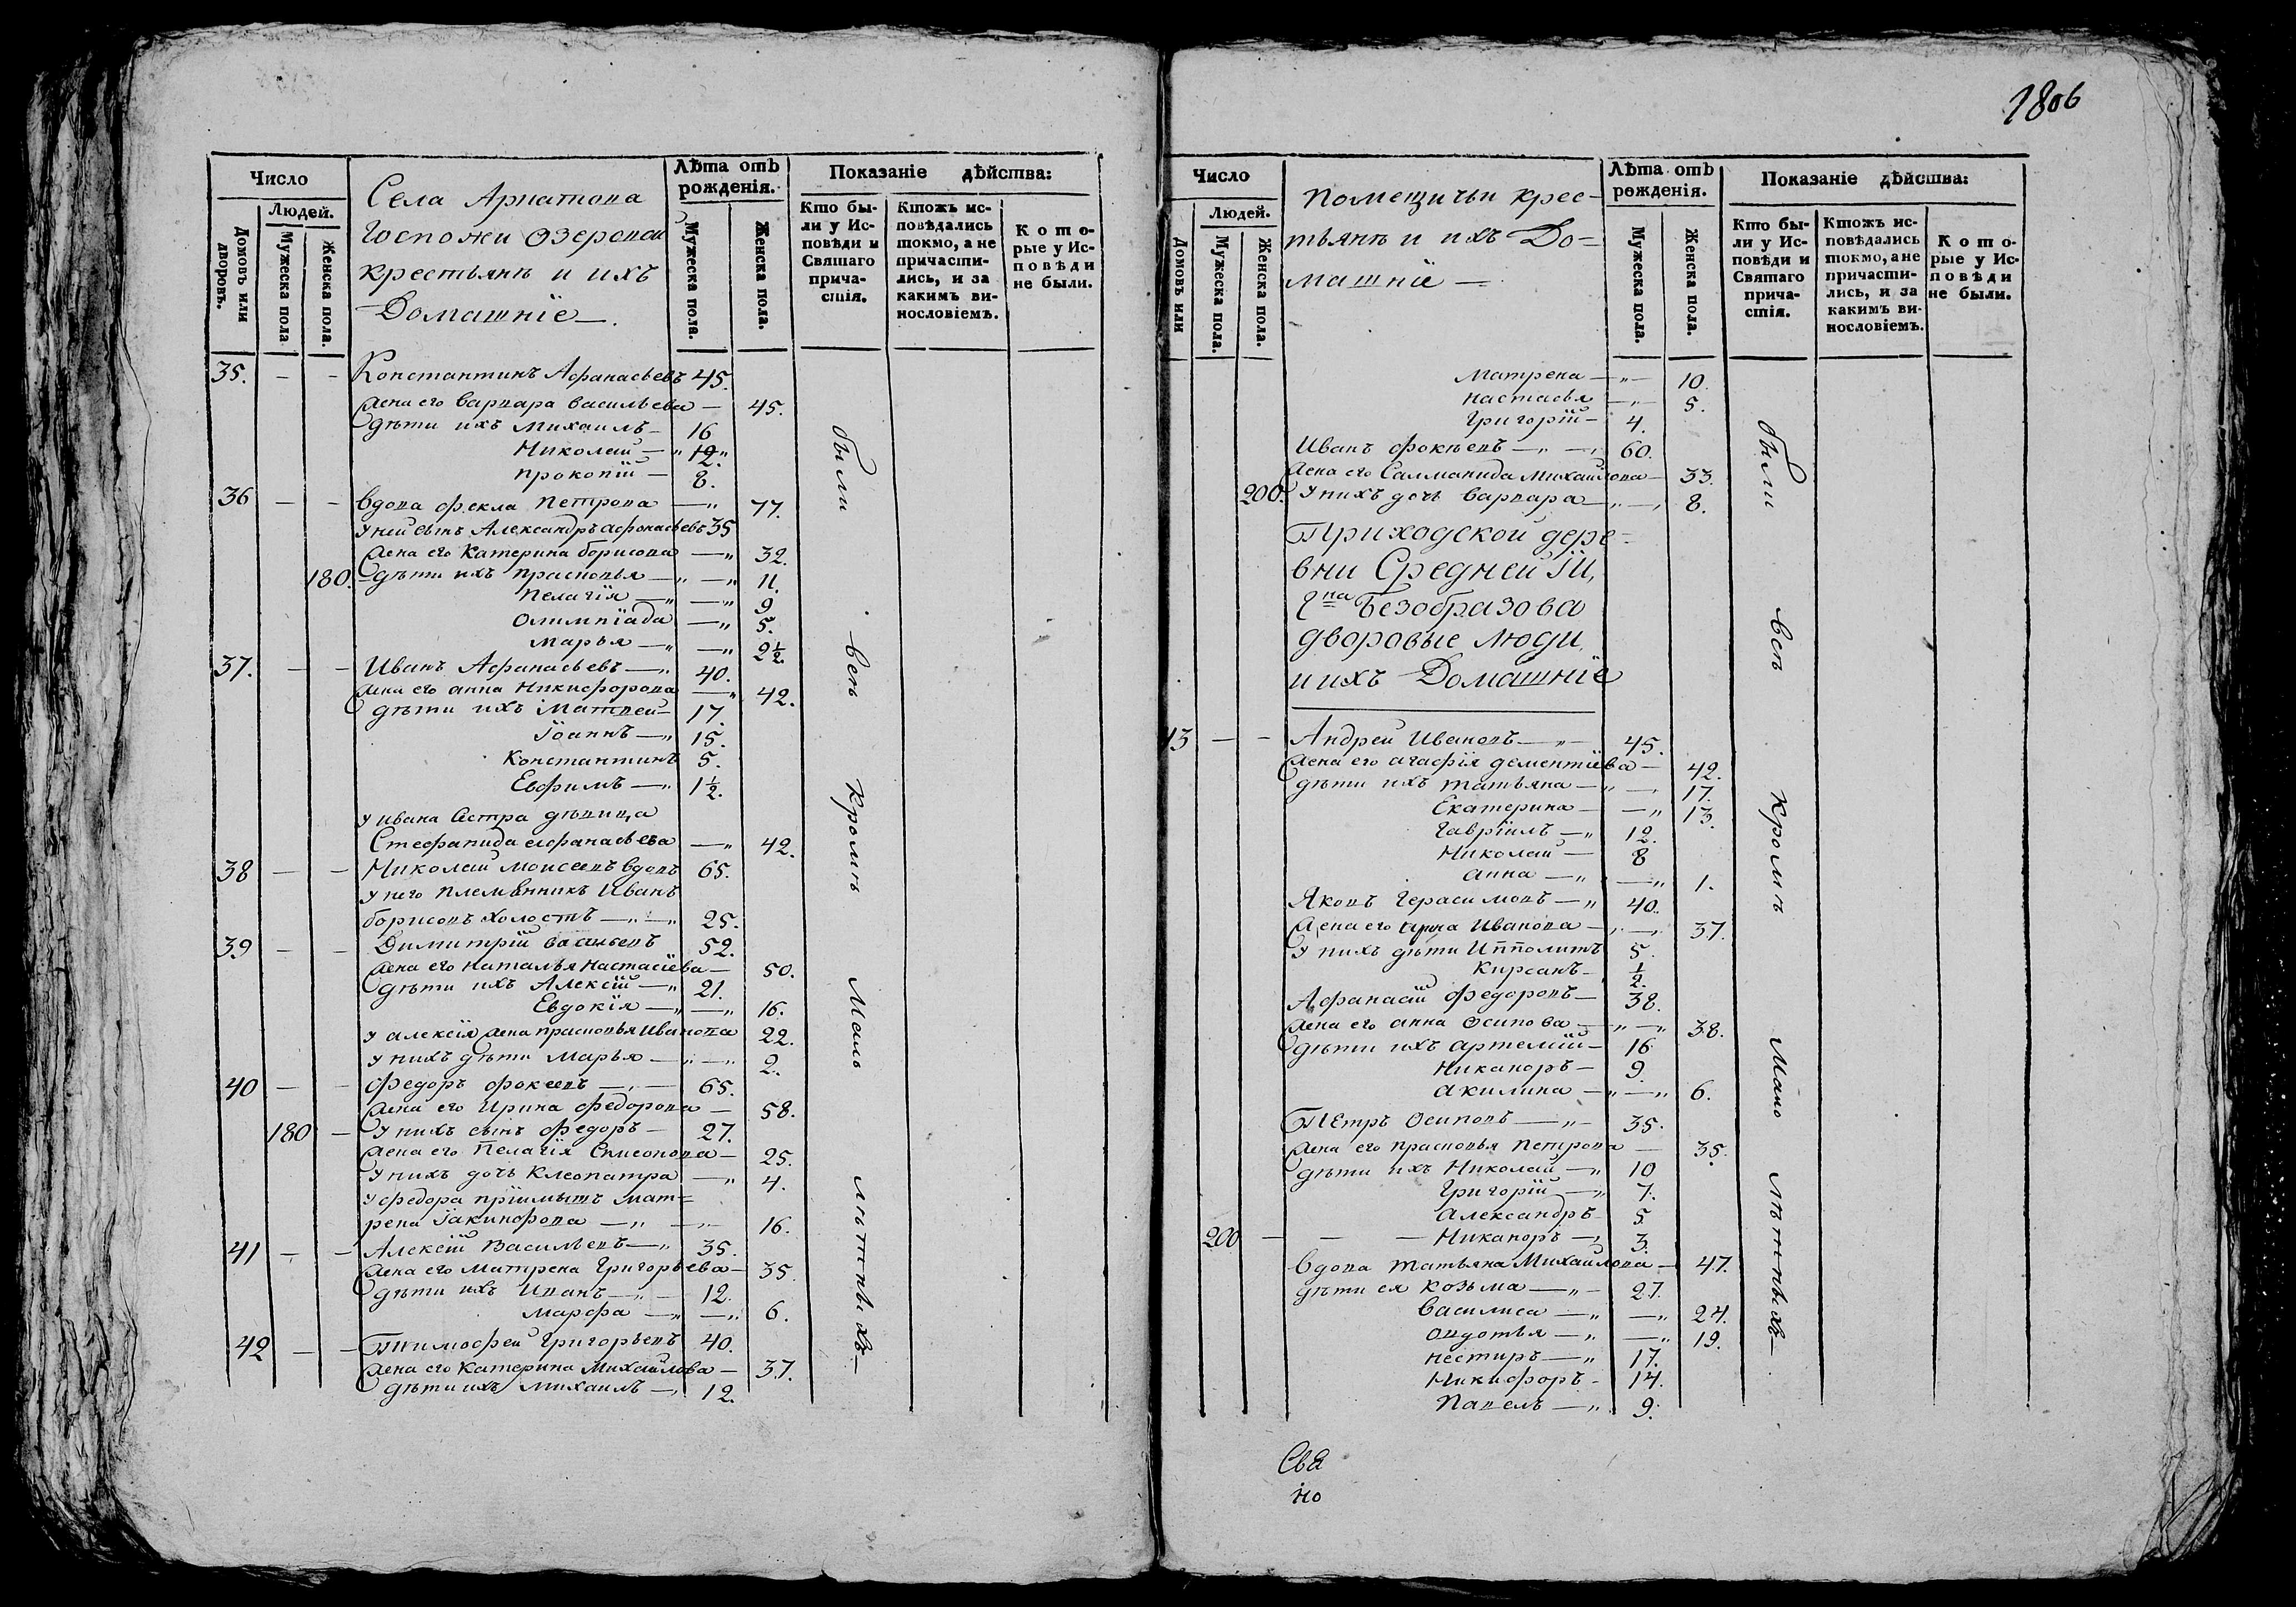 1806
Число
Людей.
Домовъ или дворовъ.
Мужеска пола
Женска пола.
Села Арпатова
Госпожи Озеровой
крестьянъ и ихъ
Домашніе —.
Лѣта отъ рожденія.
Мужеска пола.
Женска пола.
Показаніе дѣйства:
Кто бы-
ли у Ис-
повѣди и
Святаго
прича-
стія.
Ктожъ ис-
повѣдались
токмо, а не
причасти-
лись, и за
какимъ ви-
нословіемъ.
К о т о-
рые у Ис-
повѣди
не были.
35. — — Константинъ Афанасьевъ 45.
Жена его Варвара Васильева — 45.
Дѣти ихъ Михаилъ — 16
Николай — 12.
Прокопій — 8.
36 — — Вдова Фекла Петрова — 77.
У ней сынъ Александръ Афонасьевъ 35
Жена его Катерина Борисова — 32.
180. Дѣти ихъ Прасковья — 11.
Пелагія — 9
Олимпіада — 5.
Марья — 2½.
37. — — Иванъ Афанасьевъ — 40.
Жена его Анна Никифорова — 42.
Дѣти ихъ Матвей — 17.
Іоаннъ — 15.
Константинъ 5.
Ефимъ — 1½.
У Ивана Сестра дѣвица
Стефанида Афанасьева — 42.
38 — — Николай Моисеевъ вдовъ 65.
У него племянникъ Иванъ
Борисовъ холостъ — 25.
39 — — Димитрій Васильевъ 52.
Жена его Наталья Настасіева — 50.
Дѣти ихъ Алексій — 21.
Евдокія — 16.
У Алексія жена Прасковья Иванова 22.
У нихъ дѣти Марья — 2.
40 — — Федоръ Фокеевъ — 65.
Жена его Ирина Федорова — 58.
180 — У нихъ сынъ Федоръ — 27.
Жена его Пелагія Симеонова — 25.
У нихъ дочь Клеопатра — 4.
У Федора пріимышъ Мат=
рена Іакинфова — 16.
41 — — Алексій Васильевъ — 35.
Жена его Матрена Григорьева — 35
Дѣти ихъ Иванъ — 12.
Марфа — 6.
42 — — Тимофей Григорьевъ 40.
Жена его Катерина Михайлова — 37.
Дѣти ихъ Михаилъ — 12.
были всѣ кромѣ Малолѣтныхъ —
Число
Людей.
Домовъ или
Мужеска пола.
Женска пола.
Помещичьи крес-
тьянъ и ихъ До=
машніе —
Лѣта отъ рожденія.
Мужеска пола.
Женска пола.
Показаніе дѣйства:
Кто бы-
ли у Ис-
повѣди и
Святаго
прича-
стія.
Ктожъ ис-
повѣдались
токмо, а не
причасти-
лись, и за
какимъ ви-
нословіемъ.
К о т о-
рые у Ис-
повѣди
не были.
Матрена — 10.
Настасья — 5.
Григорій — 4.
Иванъ Фокѣевъ — 60.
Жена его Саломанида Михайлова — 33.
200. У нихъ дочь Варвара — 8.
Приходской дере-
вни Средней
Гна Безобразова
дворовые люди
и ихъ Домашніе
43 — — Андрей Ивановъ — 45.
Жена его Агафія Дементіева — 42.
Дѣти ихъ Татьяна — 17.
Екатерина — 13.
Гавріилъ — 12.
Николай — 8
Анна — 1.
Яковъ Герасимовъ — 40.
Жена его Ирина Иванова — 37.
У нихъ дѣти Ипполитъ 5.
Кирсанъ — ½.
Афанасій Федоровъ — 38.
Жена его Анна Осипова — 38.
Дѣти ихъ Артемій — 16.
Никаноръ — 9.
Акилина — 6.
Петръ Осиповъ — 35.
Жена его Прасковья Петрова — 35.
Дѣти ихъ Николай — 10
Григорій — 7.
Александръ 5
200 — — — Никаноръ — 3.
Вдова Татьяна Михайлова — 47.
Дѣти ея Козьма — 27.
Василиса — 24.
Овдотья — 19.
Нестиръ — 17.
Никифоръ — 14.
Павелъ — 9.
были всѣ кромѣ Малолѣтныхъ —
Свя
но